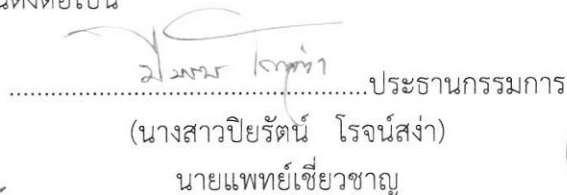 ....................................................ประธานกรรมการ
(นางสาวปิยรัตน์ โรจน์สง่า)
นายแพทย์เชี่ยวชาญ